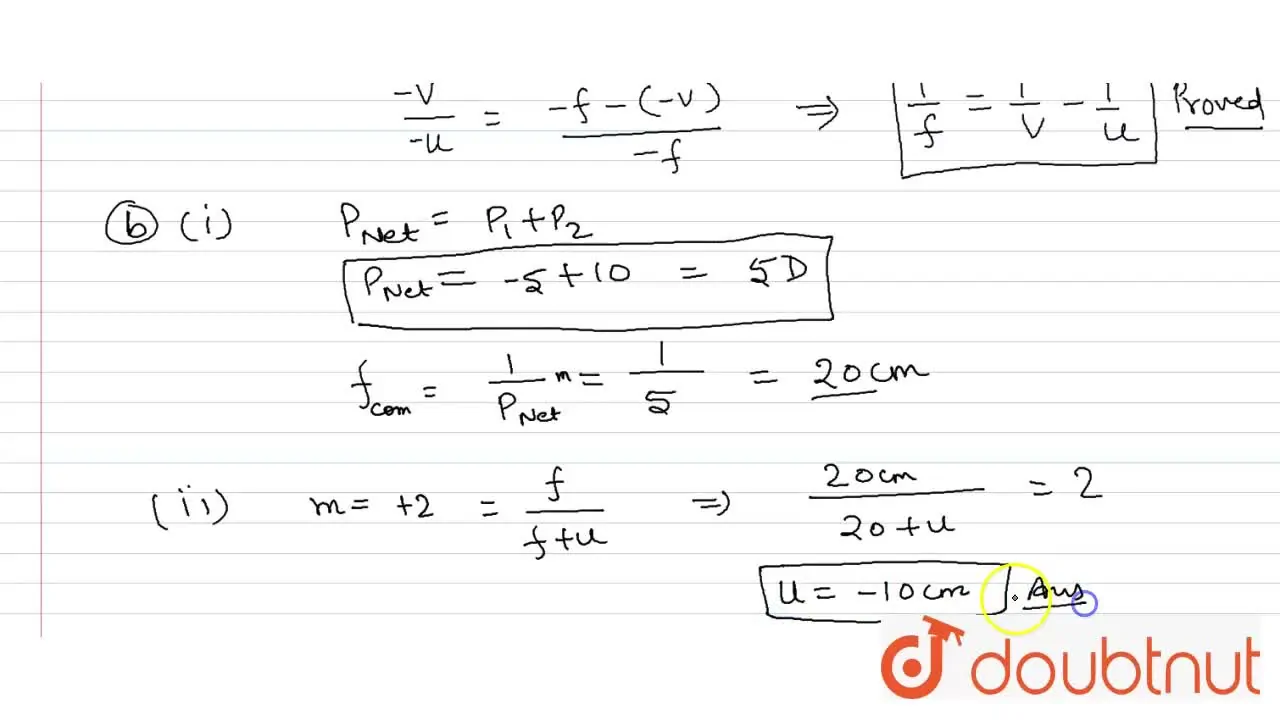 -V/-u = -f-(-v)/-f ⇒ 1/f = 1/V - 1/u Proved
(b) (i) PNet = P1+P2
PNet = -5+10 = 5D
fcom = 1/PNet m = 1/5 = 20cm
(ii) m = +2 = f/f+u ⇒ 20cm/20+u = 2
u = -10cm Ans
doubtnut